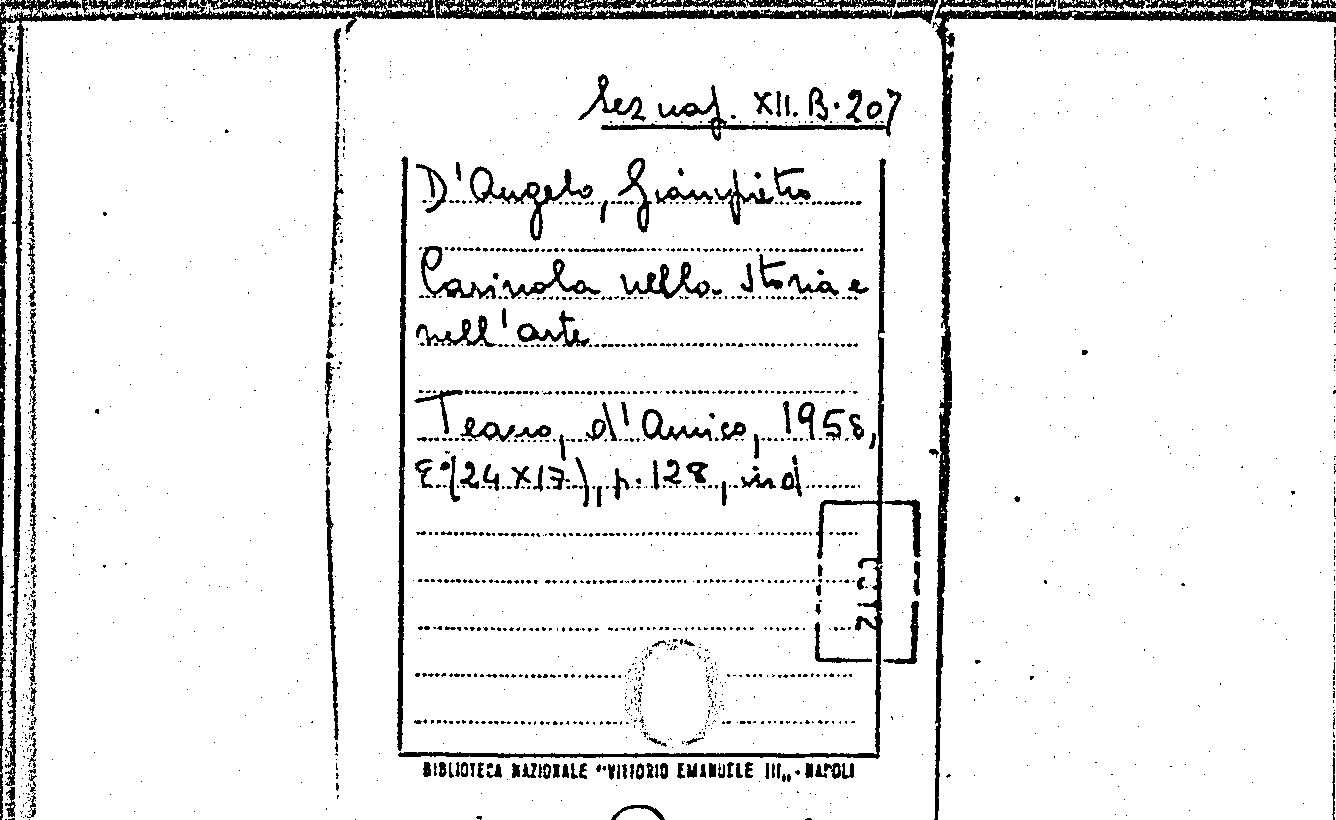 Sez nap. XII. B. 207
D'Angelo, Giampietro
Carinola nella storia e
nell'arte
Teano, d'Amico, 1958,
8°(24 X 17), p. 128, ind
BIBLIOTECA NAZIONALE "VITTORIO EMANUELE III" - NAPOLI